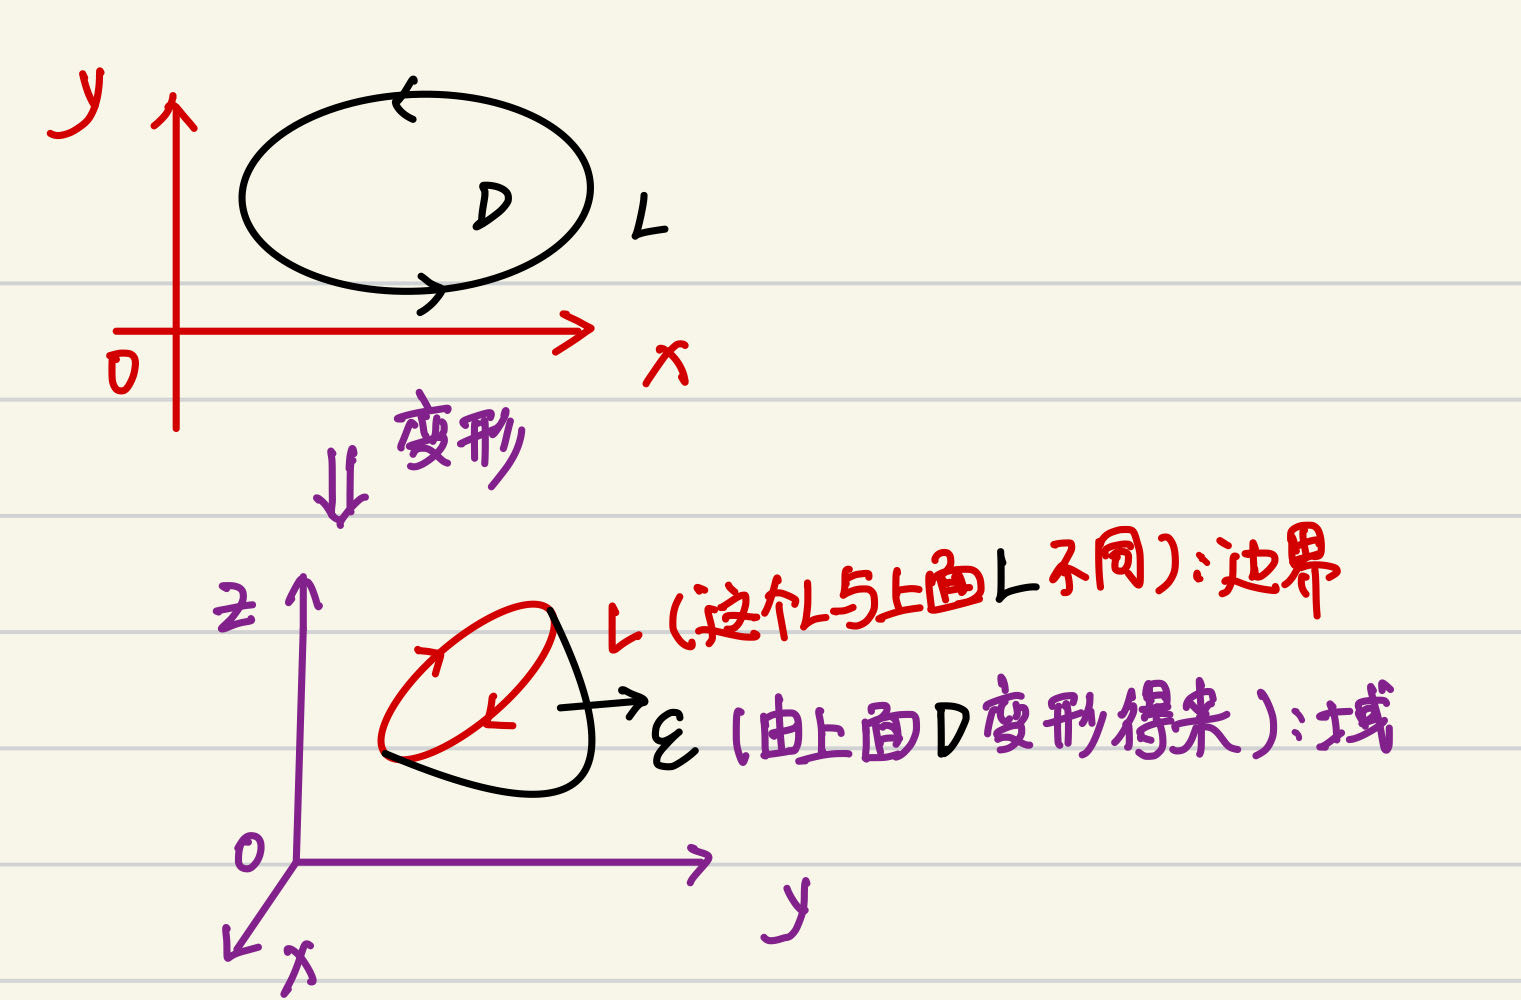 y
D
L
0
x
变形
z
L (这个L与上面L不同):边界
Σ (由上面D变形得来):域
0
y
x